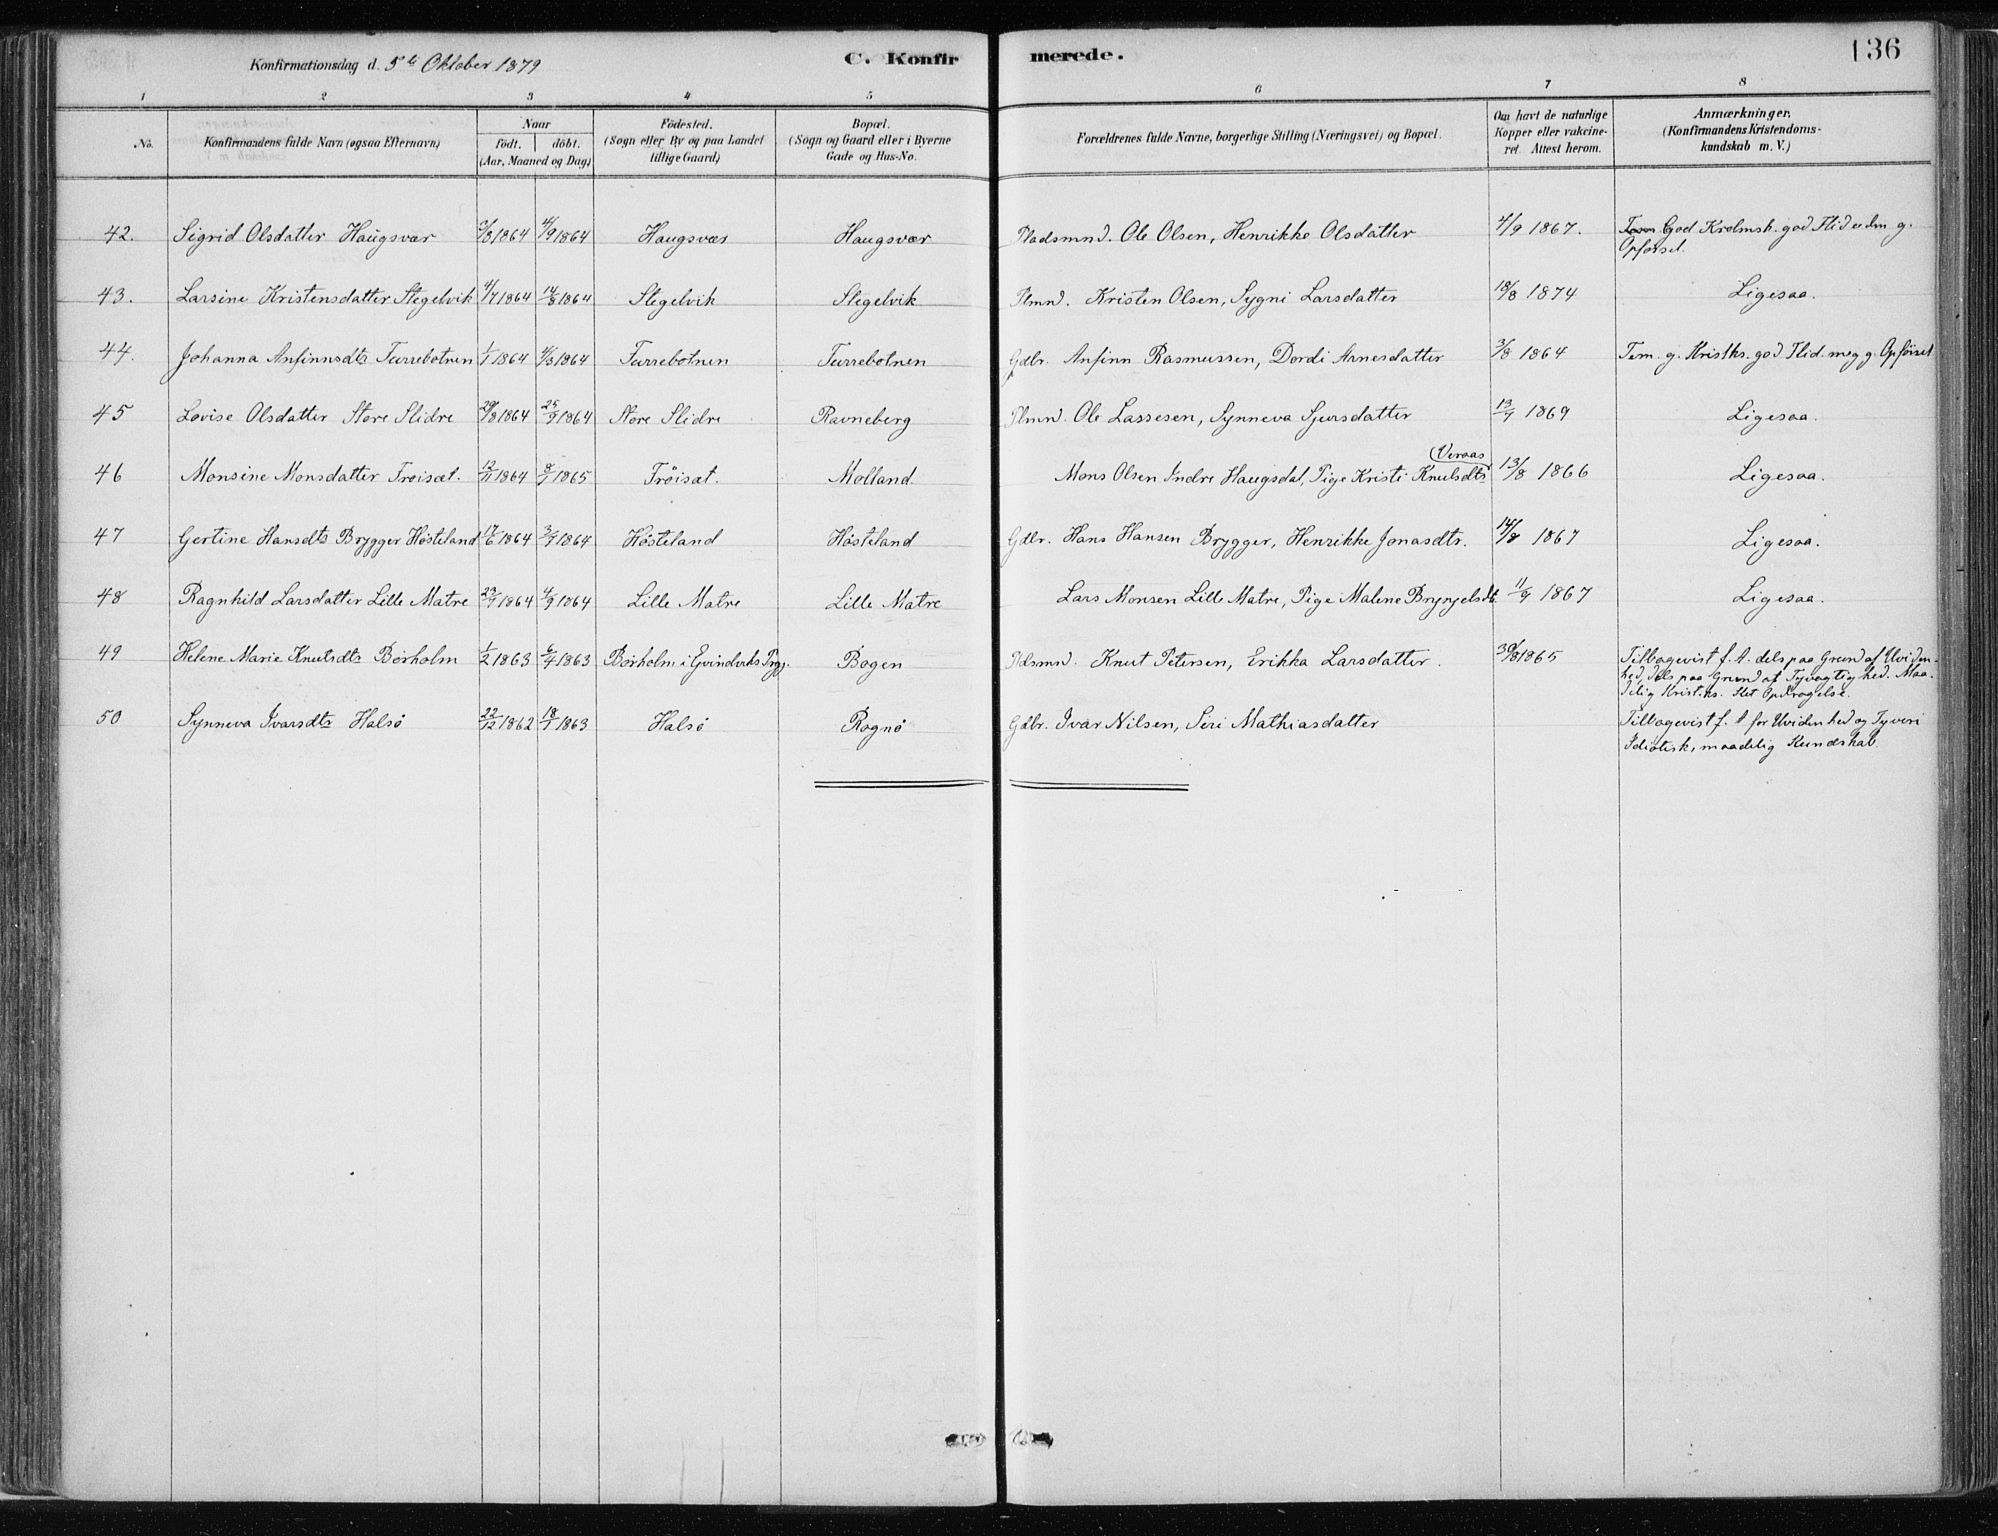 Konfirmationsdag d. 5te Oktober 1879 C. Konfirmerede. 136
1 2 3 4 5 6 7 8
No. Konfirmandens fulde Navn (ogsaa Efternavn) Naar födt. döbt. (Aar, Maaned og Dag) Födested. (Sogn eller By og paa Landet tillige Gaard) Bopæl. (Sogn og Gaard eller i Byerne Gade og Hus-No. Forældrenes fulde Navne, borgerlige Stilling (Næringsvei) og Bopæl. Om havt de naturlige Kopper eller vakcineret. Attest herom. Anmærkninger. (Konfirmandens Kristendomskundskab m. V.)
42. Sigrid Olsdatter Haugsvær /8 1864 4/9 1864 Haugsvær Haugsvær Pladsmnd. Ole Olsen, Henrikke Olsdatter 4/9 1867. God Krdmsk. god Flid udm. g.
Opførsel
43. Larsine Kristensdatter Stegelvik 4/7 1864 14/8 1864 Stegelvik Stegelvik Plmnd. Kristen Olsen, Sygni Larsdatter 18/8 1874 Ligesaa.
44. Johanna Anfinnsdtr Turrebotnen 1/1 1864 /3 1864 Turrebotnen Turrebotnen Gdbr. Anfinn Rasmussen, Dordi Arnesdatter 3/8 1864 Tem. g. Kristks. god Flid. meg g. Opførsel
45 Lovise Olsdatter Store Slidre 29/8 1864 25/9 1864 Store Slidre Ravneberg Plmnd. Ole Lassesen, Synneva Sjursdatter 13/7 1869 Ligesaa.
46 Monsine Monsdatter Trøisæt. 12/11 1864 8/7 1865 Trøisæt. Molland. Mons Olsen Indre Haugsdal, Pige Kristi Knutsdtr (Veraas) 13/8 1866 Ligesaa.
47 Gertine Hansdtr Brygger Høsteland 17/6 1864 3/7 1864 Høsteland Høsteland Gdbr. Hans Hansen Brygger, Henrikke Jonasdtr. 14/8 1867 Ligesaa.
48 Ragnhild Larsdatter Lille Matre 23/7 1864 4/9 1864 Lille Matre Lille Matre Lars Monsen Lille Matre, Pige Malene Brynjelsdt. 11/9 1867 Ligesaa.
49 Helene Marie Knutsdtr Børholm 1/2 1863 6/4 1863 Børholm i Evindviks Prgj. Bogen Pldsmnd. Knut Petersen, Erikka Larsdatter. 30/8 1865 Tilbagevist f. A. dels paa Grund af Uviden-
hed, dels paa Grund af Tyvagtighed. Maa-
delig Krist.ks. Slet Opdragelse.
50 Synneva Ivarsdtr Halsø 22/12 1862 18/1 1863 Halsø Rognø Gdbr. Ivar Nilsen, Seri Mathiasdatter Tilbagevist f. A for Uvidenhed og Tyveri
Idiotisk, maadelig Kundskab.